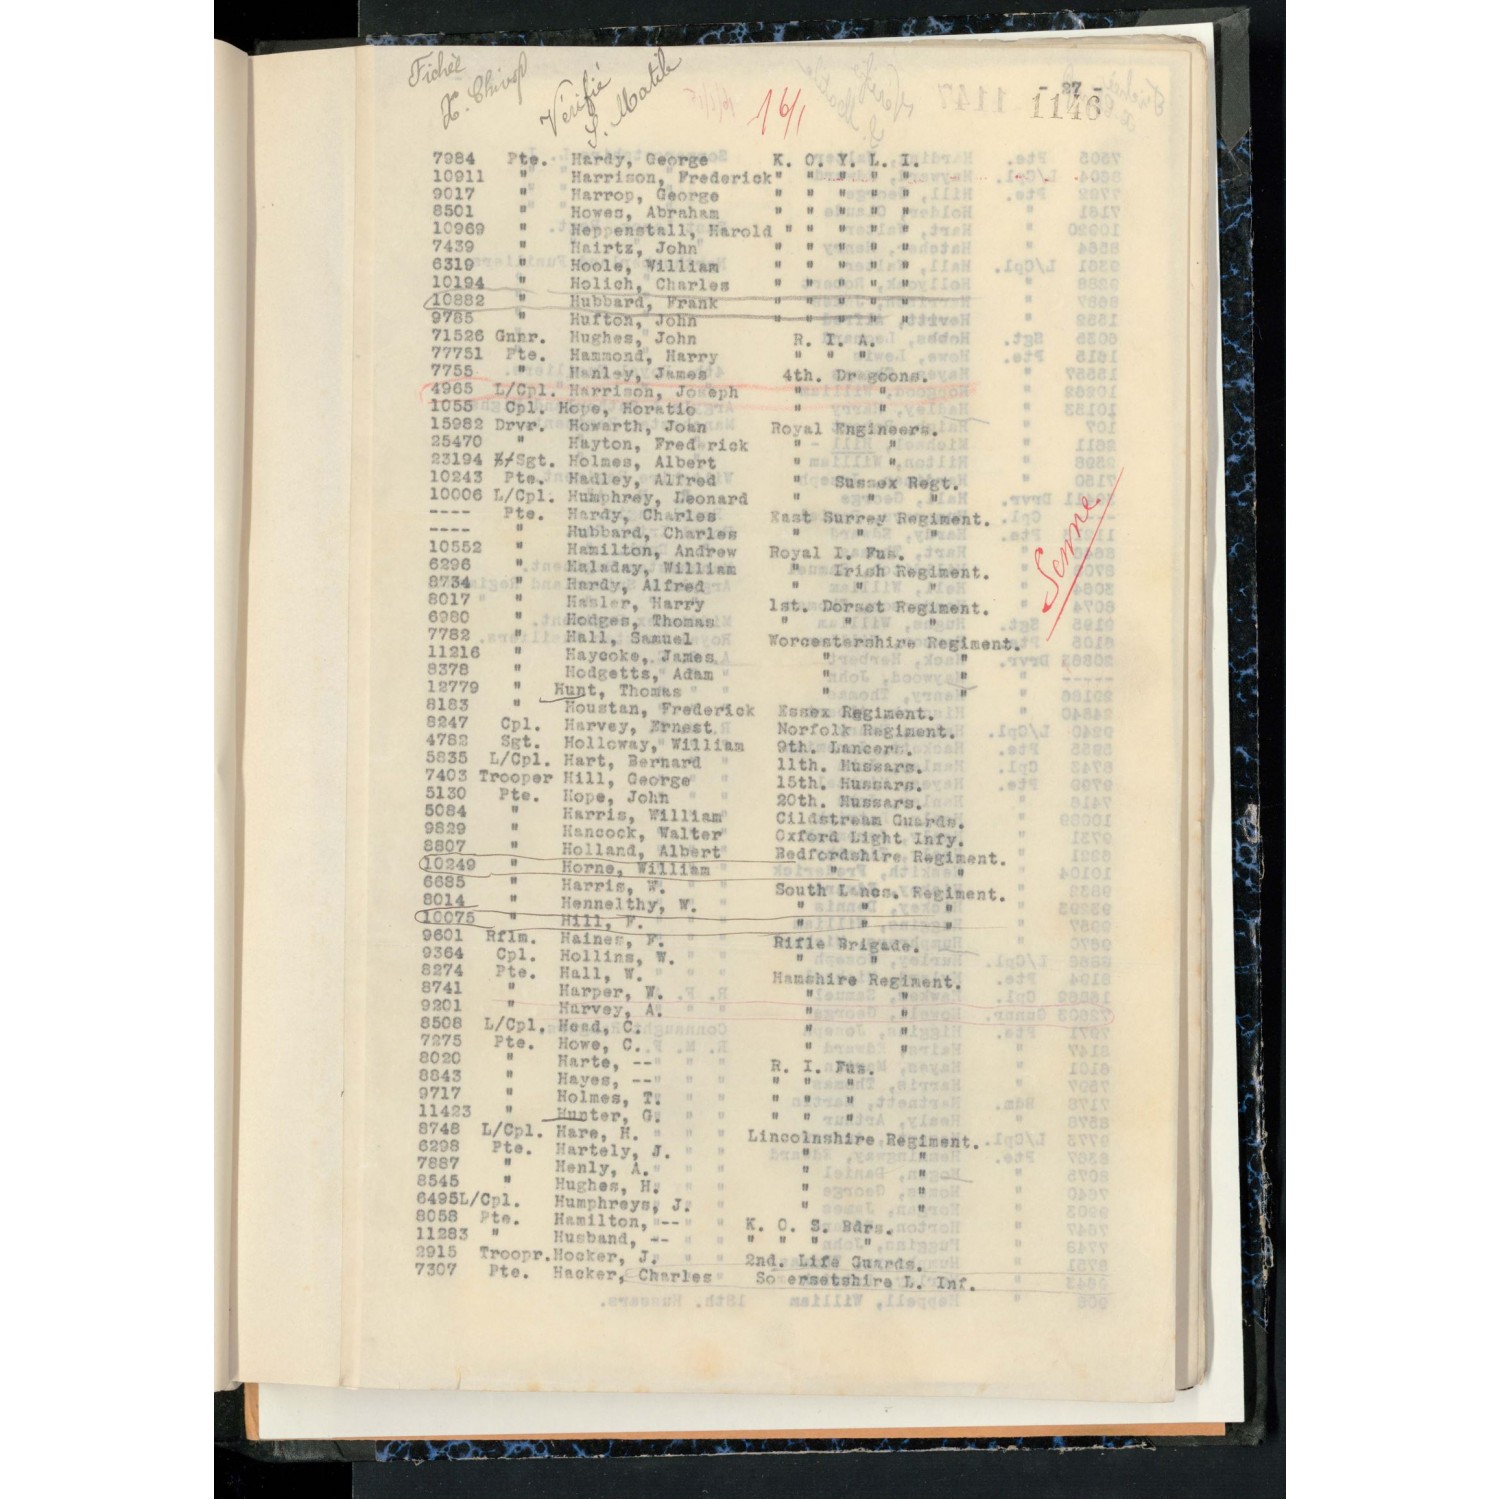 Fichée
Vérifié
16/1
- 27 -
1146
7984 Pte. Hardy, George K. O. Y. L. I.
10911 " Harrison, Frederick " " " " "
9017 " Harrop, George " " " " "
8501 " Howes, Abraham " " " " "
10969 " Heppenstall, Harold " " " " "
7439 " Hairtz, John " " " " "
6319 " Hoole, William " " " " "
10194 " Holich, Charles " " " " "
10882 " Hubbard, Frank " " " " "
9785 " Hufton, John " " " " "
71526 Gnnr. Hughes, John R. I. A.
77751 Pte. Hammond, Harry " " "
7755 " Hanley, James 4th. Dragoons.
4965 L/Cpl. Harrison, Joseph " "
1055 Cpl. Hope, Horatio " "
15982 Drvr. Howarth, Joan Royal Engineers.
25470 " Hayton, Frederick " "
23194 Sgt. Holmes, Albert " "
10243 Pte. Hadley, Alfred " Sussex Regt.
10006 L/Cpl. Humphrey, Leonard " " "
---- Pte. Hardy, Charles East Surrey Regiment.
---- " Hubbard, Charles " " "
10552 " Hamilton, Andrew Royal I. Fus.
6296 " Haladay, William " Irish Regiment.
8734 " Hardy, Alfred " " "
8017 " Hasler, Harry 1st. Dorset Regiment.
6980 " Hodges, Thomas " " "
7782 " Hall, Samuel Worcestershire Regiment.
11216 " Haycoke, James " "
8378 " Hodgetts, Adam " "
12779 " Hunt, Thomas " "
8183 " Houstan, Frederick Essex Regiment.
8247 Cpl. Harvey, Ernest Norfolk Regiment.
4782 Sgt. Holloway, William 9th. Lancern.
5835 L/Cpl. Hart, Bernard 11th. Hussars.
7403 Trooper Hill, George 15th. Hussars.
5130 Pte. Hope, John 20th. Hussars.
5084 " Harris, William Cildstream Guards.
9829 " Hancock, Walter Oxford Light Infy.
8807 " Holland, Albert Bedfordshire Regiment.
10249 " Horne, William " "
6685 " Harris, W. South Lncs. Regiment.
8014 " Hennelthy, W. " " "
10075 " Hill, F. " " "
9601 Rflm. Haines, F. Rifle Brigade.
9364 Cpl. Hollins, W. " "
8274 Pte. Hall, W. Hamshire Regiment.
8741 " Harper, W. " "
9201 " Harvey, A. " "
8508 L/Cpl. Head, C. " "
7275 Pte. Howe, C. " "
8020 " Harte, -- R. I. Fus.
8843 " Hayes, -- " " "
9717 " Holmes, T. " " "
11423 " Hunter, G. " " "
8748 L/Cpl. Hare, H. Lincolnshire Regiment.
6298 Pte. Hartely, J. " "
7887 " Henly, A. " "
8545 " Hughes, H. " "
6495L/Cpl. Humphreys, J. " "
8058 Pte. Hamilton, -- K. O. S. Bdrs.
11283 " Husband, -- " " " "
2915 Troopr. Hocker, J. 2nd. Life Guards.
7307 Pte. Hacker, Charles Somersetshire L. Inf.